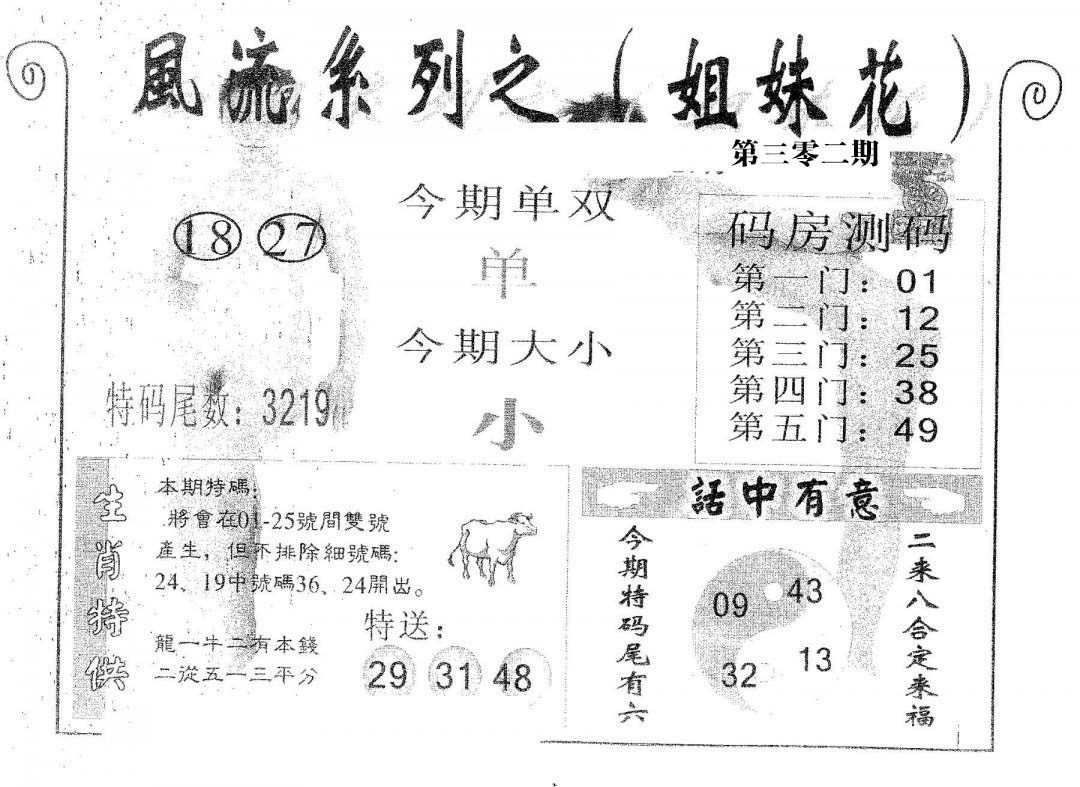 風流系列之（姐妹花）
第三零二期
18 27
今期单双
单
今期大小
小
特码尾数：3219
码房测码
第一门：01
第二门：12
第三门：25
第四门：38
第五门：49
生肖特供
本期特碼：
將會在01-25號間雙號
產生，但不排除細號碼：
24、19中號碼36、24開出。
龍一牛二有本錢
二從五一三平分
特送：
29 31 48
話中有意
今期特码尾有六
09 43
32 13
二来八合定来福